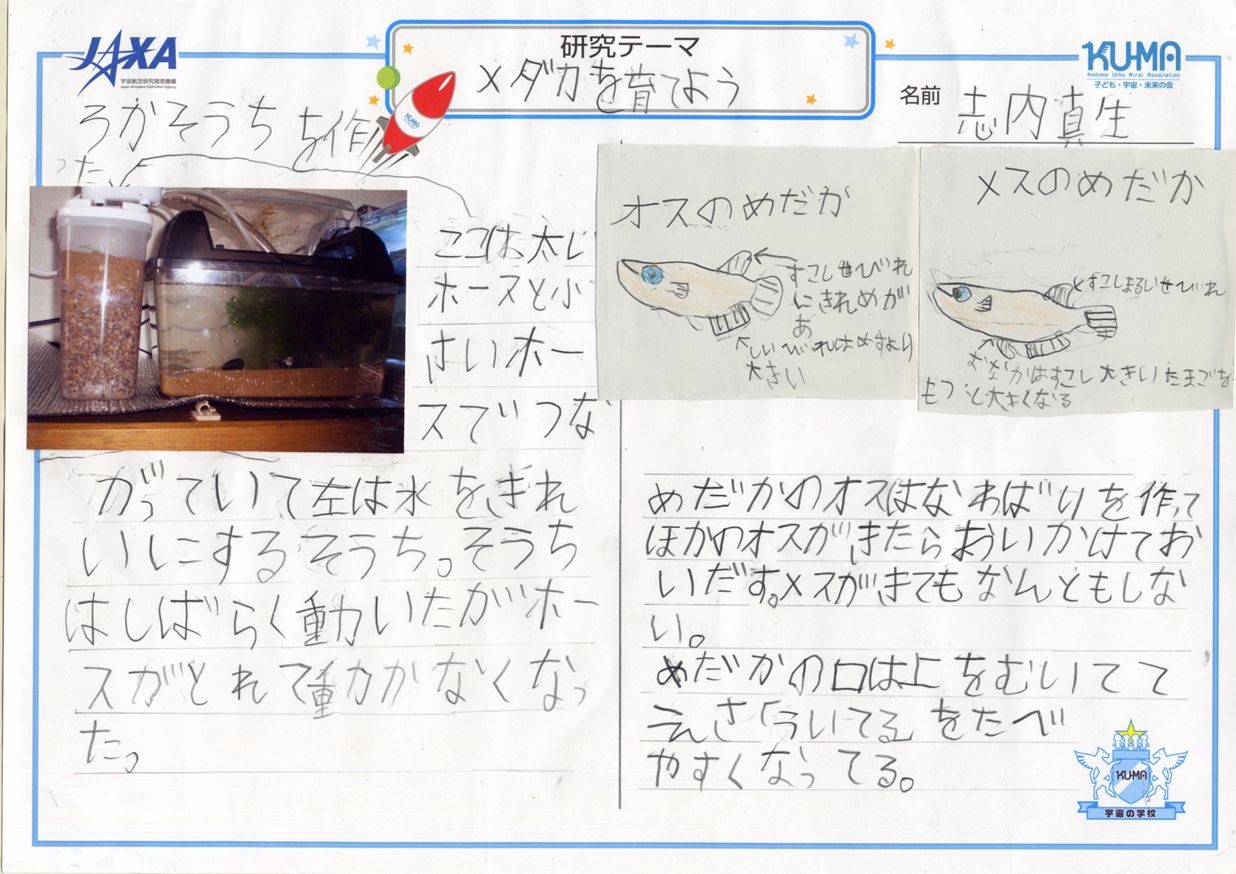 JAXA
宇宙航空研究開発機構
Japan Aerospace Exploration Agency
研究テーマ
メダカを育てよう
KUMA
Kodomo Uchu Mirai Association
子ども・宇宙・未来の会
名前 志内真生
ろかそうちを作っ
た。
ここは太い
ホースと小
さいホー
スでつな
がっていて左は水をきれ
いにするそうち。そうち
はしばらく動いたがホー
スがとれて動かなくなっ
た。
オスのめだか
すこしせびれ
にきれめが
あ
しいびれはめすより
大きい
メスのめだか
すこしまるいせびれ
おなかはすこし大きいたまごを
もつと大きくなる
めだかのオスはなわばりを作って
ほかのオスがきたらおいかけてお
いだす。メスがきてもなんともしな
い。
めだかの口は上をむいてて
えさ「ういてる」をたべ
やすくなってる。
KUMA
宇宙の学校